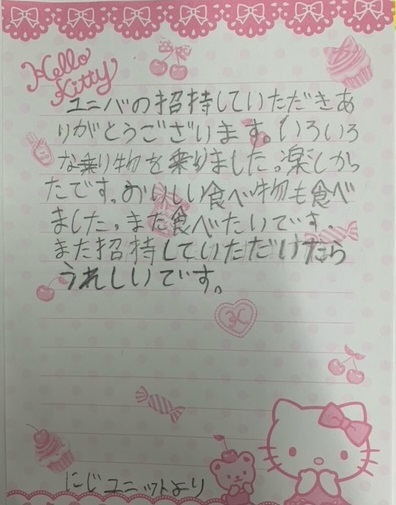 Hello
Kitty
ユニバの招待していただきあ
りがとうございます。いろいろ
な乗り物を乗りました。楽しかっ
たです。おいしい食べ物も食べ
ました。また食べたいです。
また招待していただけたら
うれしいです。
にじユニットより